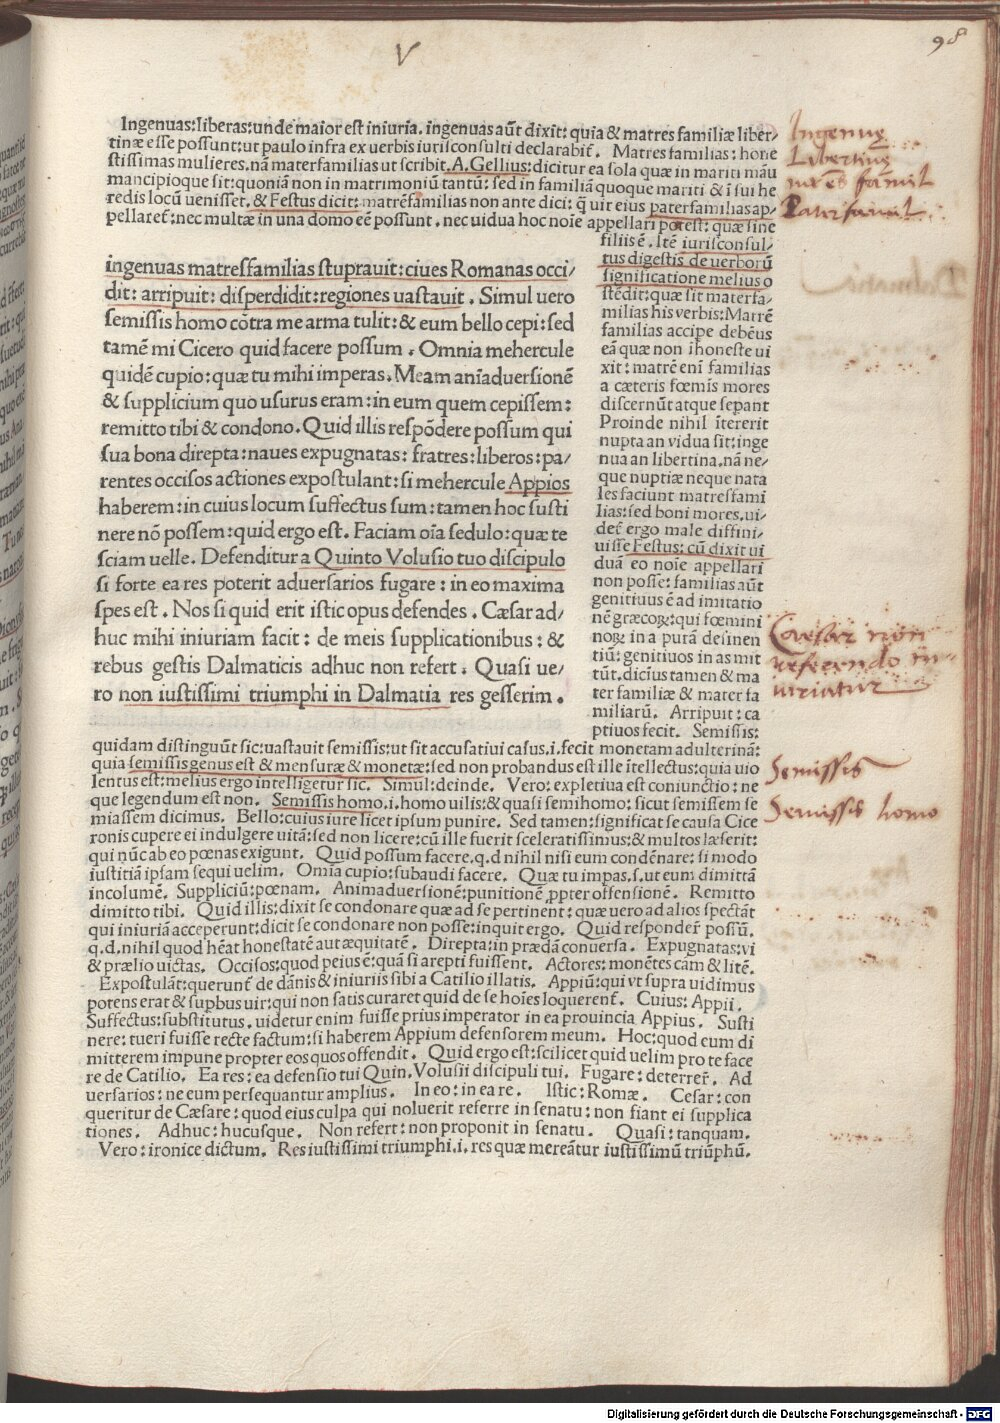 V
98
Ingenuas:liberas:unde maior est iniuria. ingenuas aūt dixit: quia & matres familiæ liber-
tinæ esse possunt:ut paulo infra ex uerbis iurisconsulti declarabit̄. Matres familias: hone
stissimas mulieres.nā materfamilias ut scribit.A.Gellius:dicitur ea sola quæ in mariti māu
mancipioque sit:quoniā non in matrimoniū tantū: sed in familiā quoque mariti & ī sui he
redis locū uenisset. & Festus dicit:matrēfamilias non ante dici: q̄ uir eius paterfamilias ap-
pellaret̄:nec multæ in una domo eē possunt . nec uidua hoc noīe appellari potest: quæ sine
filiis ē. Itē iurisconsul-
tus digestis de uerborū
significatione melius o
stēdit:quæ sit materfa-
milias his uerbis:Matrē
familias accipe debēus
eā quæ non īhoneste ui
xit: matrē enī familias
a cæteris fœmis mores
discernūt atque sepant
Proinde nihil ītererit
nupta an uidua sit:inge
nua an libertina.nā ne-
que nuptiæ neque nata
les faciunt matresfami
lias:sed boni mores.ui-
det̄ ergo male diffini-
uisse Festus: cū dixit ui
duā eo noīe appellari
non posse: familias aūt
genitiuus ē ad imitatio
nē græcoꝝ:qui fœmini
noꝝ in a putā desinen
tiū:genitiuos in as mit
tūt.dicius tamen & ma
ter familiæ & mater fa
miliarū. Arripuit: ca
ptiuos fecit. Semissis:
ingenuas matresfamilias stuprauit:ciues Romanas occi/
dit: arripuit: disperdidit:regiones uastauit . Simul uero
semissis homo cōtra me arma tulit:& eum bello cepi:sed
tamē mi Cicero quid facere possum . Omnia mehercule
quidē cupio:quæ tu mihi imperas.Meam anīaduersionē
& supplicium quo usurus eram:in eum quem cepissem:
remitto tibi & condono.Quid illis respōdere possum qui
sua bona direpta:naues expugnatas: fratres:liberos:pa/
rentes occisos actiones expostulant:si mehercule Appios
haberem:in cuius locum suffectus sum:tamen hoc susti
nere nō possem:quid ergo est. Faciam oīa sedulo:quæ te
sciam uelle. Defenditur a Quinto Volusio tuo discipulo
si forte ea res poterit aduersarios fugare : in eo maxima
spes est . Nos si quid erit istic opus defendes . Cæsar ad/
huc mihi iniuriam facit : de meis supplicationibus : &
rebus gestis Dalmaticis adhuc non refert . Quasi ue/
ro non iustissimi triumphi in Dalmatia res gesserim .
quidam distinguūt sic:uastauit semissis:ut sit accusatiui casus.i.fecit monetam adulterinā:
quia semissis genus est & mensuræ & monetæ:sed non probandus est ille ītellectus:quia uio
lentus est:melius ergo intelligetur sic. Simul:deinde. Vero: expletiua est coniunctio : ne
que legendum est non. Semissis homo.i.homo uilis:& quasi semihomo: sicut semissem se
miassem dicimus. Bello:cuius iure licet ipsum punire. Sed tamen:significat se causa Cice
ronis cupere ei indulgere uitā:sed non licere:cū ille fuerit sceleratissimus:& multos læserit:
qui nūc ab eo pœnas exigunt. Quid possum facere.q.d nihil nisi eum condēnare: si modo
iustitiā ipsam sequi uelim. Omīa cupio:subaudi facere. Quæ tu impas.s.ut eum dimittā
incolumē. Suppliciū:pœnam. Animaduersionē:punitionē ꝓpter offensionē. Remitto
dimitto tibi. Quid illis:dixit se condonare quæ ad se pertinent: quæ uero ad alios spectāt
qui iniuriā acceperunt:dicit se condonare non posse:inquit ergo. Quid responder̄ possū.
q.d.nihil quod hēat honestatē aut æquitatē. Direpta:in prædā conuersa. Expugnatas:vi
& prælio uictas. Occisos:quod peius ē:quā si arepti fuissent. Actores: monētes cām & litē.
Expostulāt:querunt̄ de dānis & iniuriis sibi a Catilio illatis. Appiū:qui vt supra uidimus
potens erat & supbus uir:qui non satis curaret quid de se hoīes loquerent̄. Cuius: Appii.
Suffectus:substitutus.uidetur enim fuisse prius imperator in ea prouincia Appius. Susti
nere: tueri fuisse recte factum:si haberem Appium defensorem meum. Hoc:quod eum di
mitterem impune propter eos quos offendit. Quid ergo est:scilicet quid uelim pro te face
re de Catilio. Ea res: ea defensio tui Quin.Volusii discipuli tui. Fugare: deterrer̄. Ad
uersarios: ne eum persequantur amplius. In eo: in ea re. Istic: Romæ. Cesar: con
queritur de Cæsare: quod eius culpa qui noluerit referre in senatu: non fiant ei supplica
tiones. Adhuc: hucusque. Non refert: non proponit in senatu. Quasi: tanquam.
Vero: ironice dictum. Res iustissimi triumphi.i. res quæ mereātur iustissimū triūphū.
Ingenuę
Libertinę
mr̄es famil
Paterfamil
Caesar non
referendo in-
iuriatur
Semissis
Semissis homo
Digitalisierung gefördert durch die Deutsche Forschungsgemeinschaft - DFG